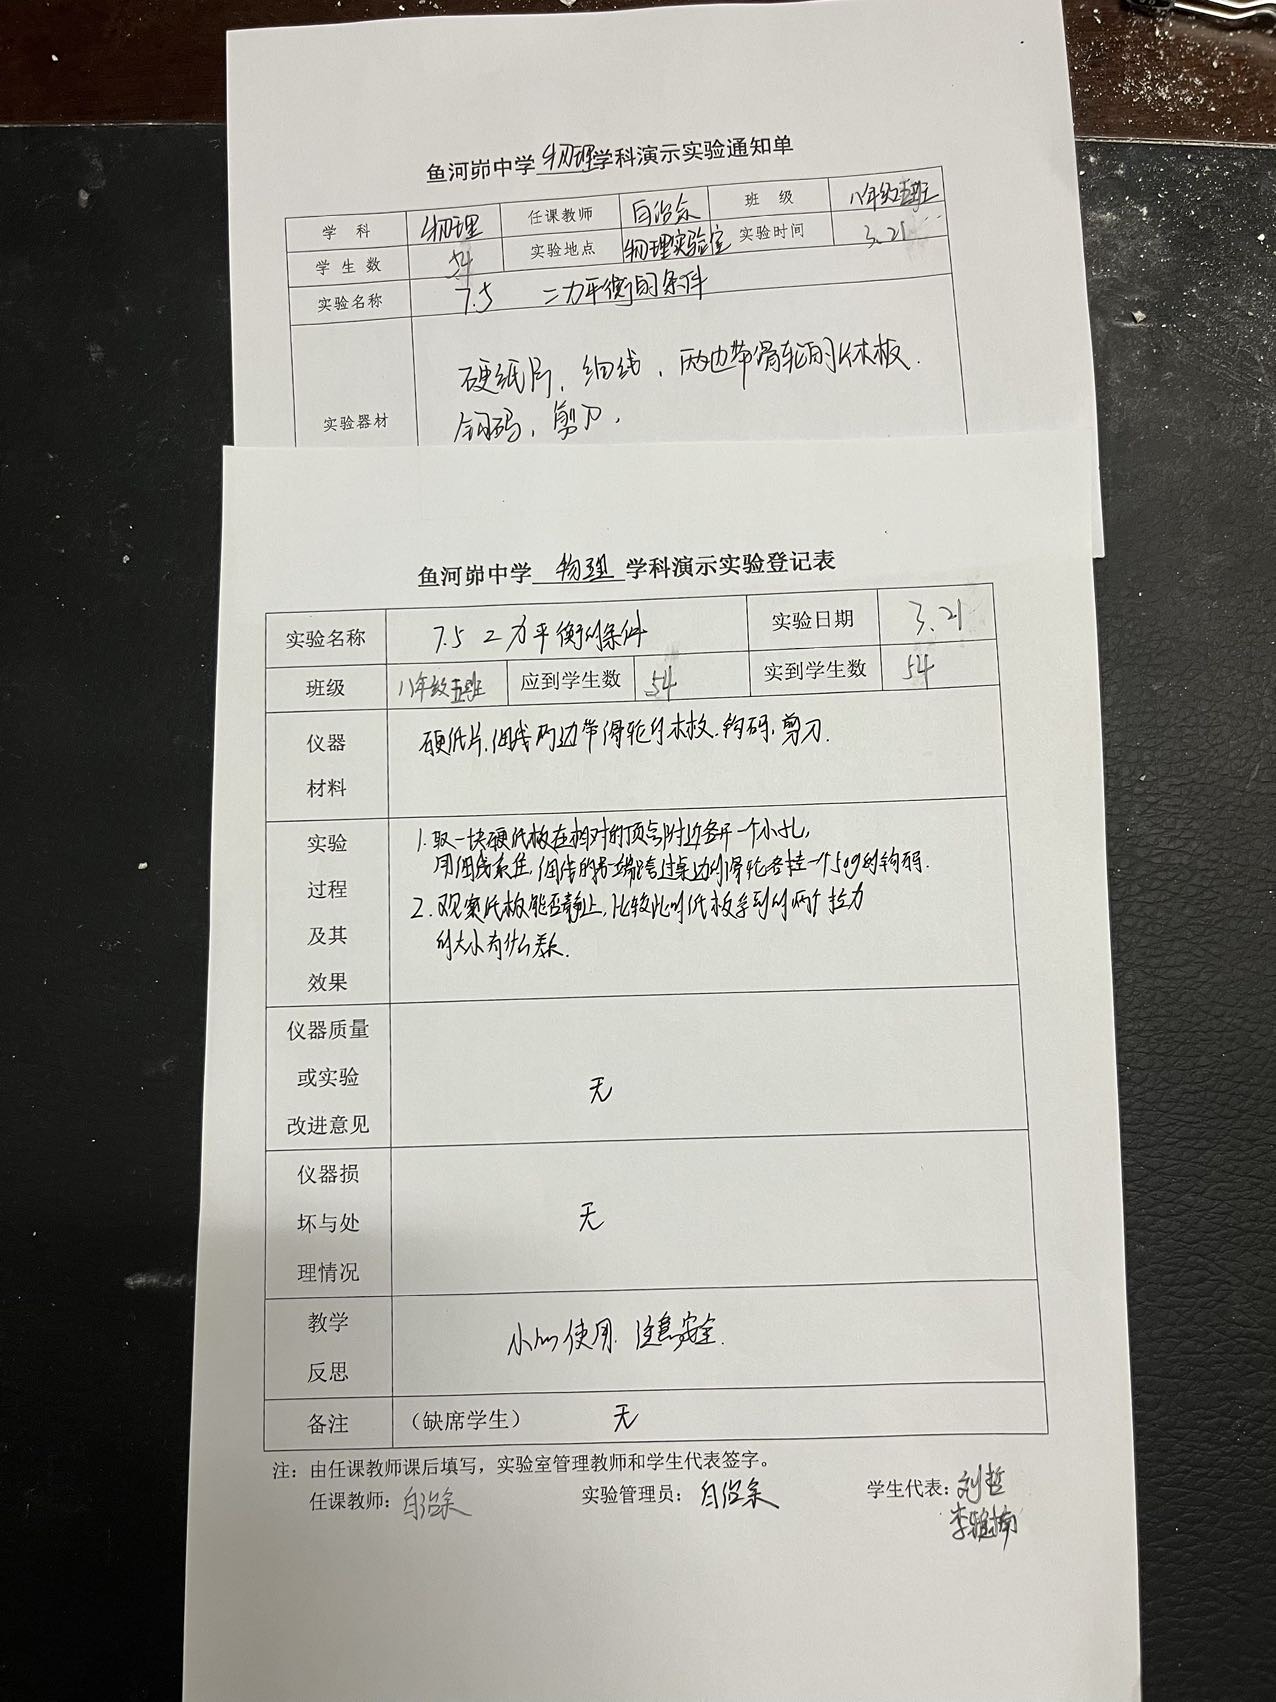 鱼河峁中学物理学科演示实验通知单
学 科 物理 任课教师 白治宗 班 级 八年级五班
学生数 54 实验地点 物理实验室 实验时间 3.21
实验名称 7.5 二力平衡的条件
实验器材
硬纸片，细线，两边带滑轮的木板.
钩码，剪刀，
鱼河峁中学 物理 学科演示实验登记表
实验名称 7.5 二力平衡的条件 实验日期 3.21
班级 八年级五班 应到学生数 54 实到学生数 54
仪器
材料
硬纸片.细线两边带滑轮的木板.钩码.剪刀.
实验
过程
及其
效果
1.取一块硬纸板在相对的顶点附近各开一个小孔，
用细线系住，细线的另一端跨过桌边的滑轮各挂一个50g的钩码.
2.观察纸板能否静止，比较此时纸板受到的两个拉力
的大小有什么关系.
仪器质量
或实验
改进意见
无
仪器损
坏与处
理情况
无
教学
反思
小心使用.注意安全.
备注 （缺席学生） 无
注：由任课教师课后填写，实验室管理教师和学生代表签字。
任课教师: 实验管理员: 学生代表: 刘哲
李雅楠